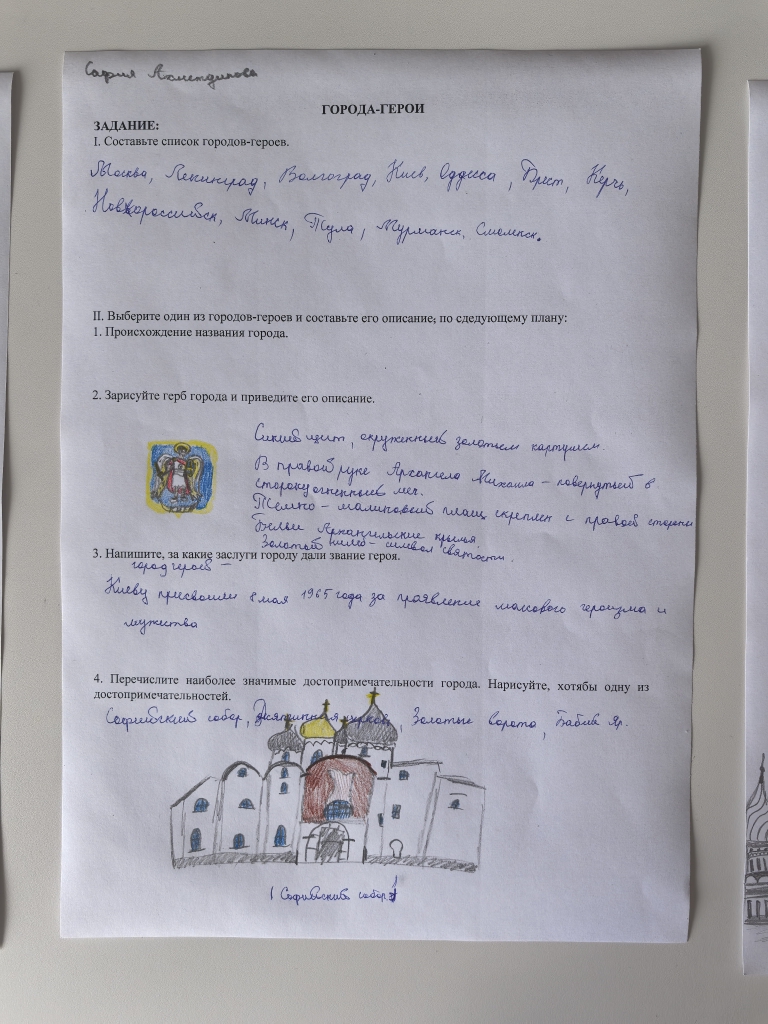 София Ахмедилова
ГОРОДА-ГЕРОИ
ЗАДАНИЕ:
I. Составьте список городов-героев.
Москва, Ленинград, Волгоград, Киев, Оддесса, Брест, Керчь,
Новороссийск, Минск, Тула, Мурманск, Смоленск.
II. Выберите один из городов-героев и составьте его описание, по следующему плану:
1. Происхождение названия города.
2. Зарисуйте герб города и приведите его описание.
Синий щит, окруженный золотым картушем.
В правой руке Архангела Михаила – повернутый в
сторону огненный меч.
Темно – малиновый плащ скреплен с правой стороны
Белые Архангельские крылья.
Золотый нимб – символ святости.
3. Напишите, за какие заслуги городу дали звание героя.
город герой –
Киеву присвоили 8 мая 1965 года за проявление массового героизма и
мужества
4. Перечислите наиболее значимые достопримечательности города. Нарисуйте, хотябы одну из
достопримечательностей.
Софийский собор, Десятинная церковь, Золотые ворота, Бабий Яр.
(Софийский собор)